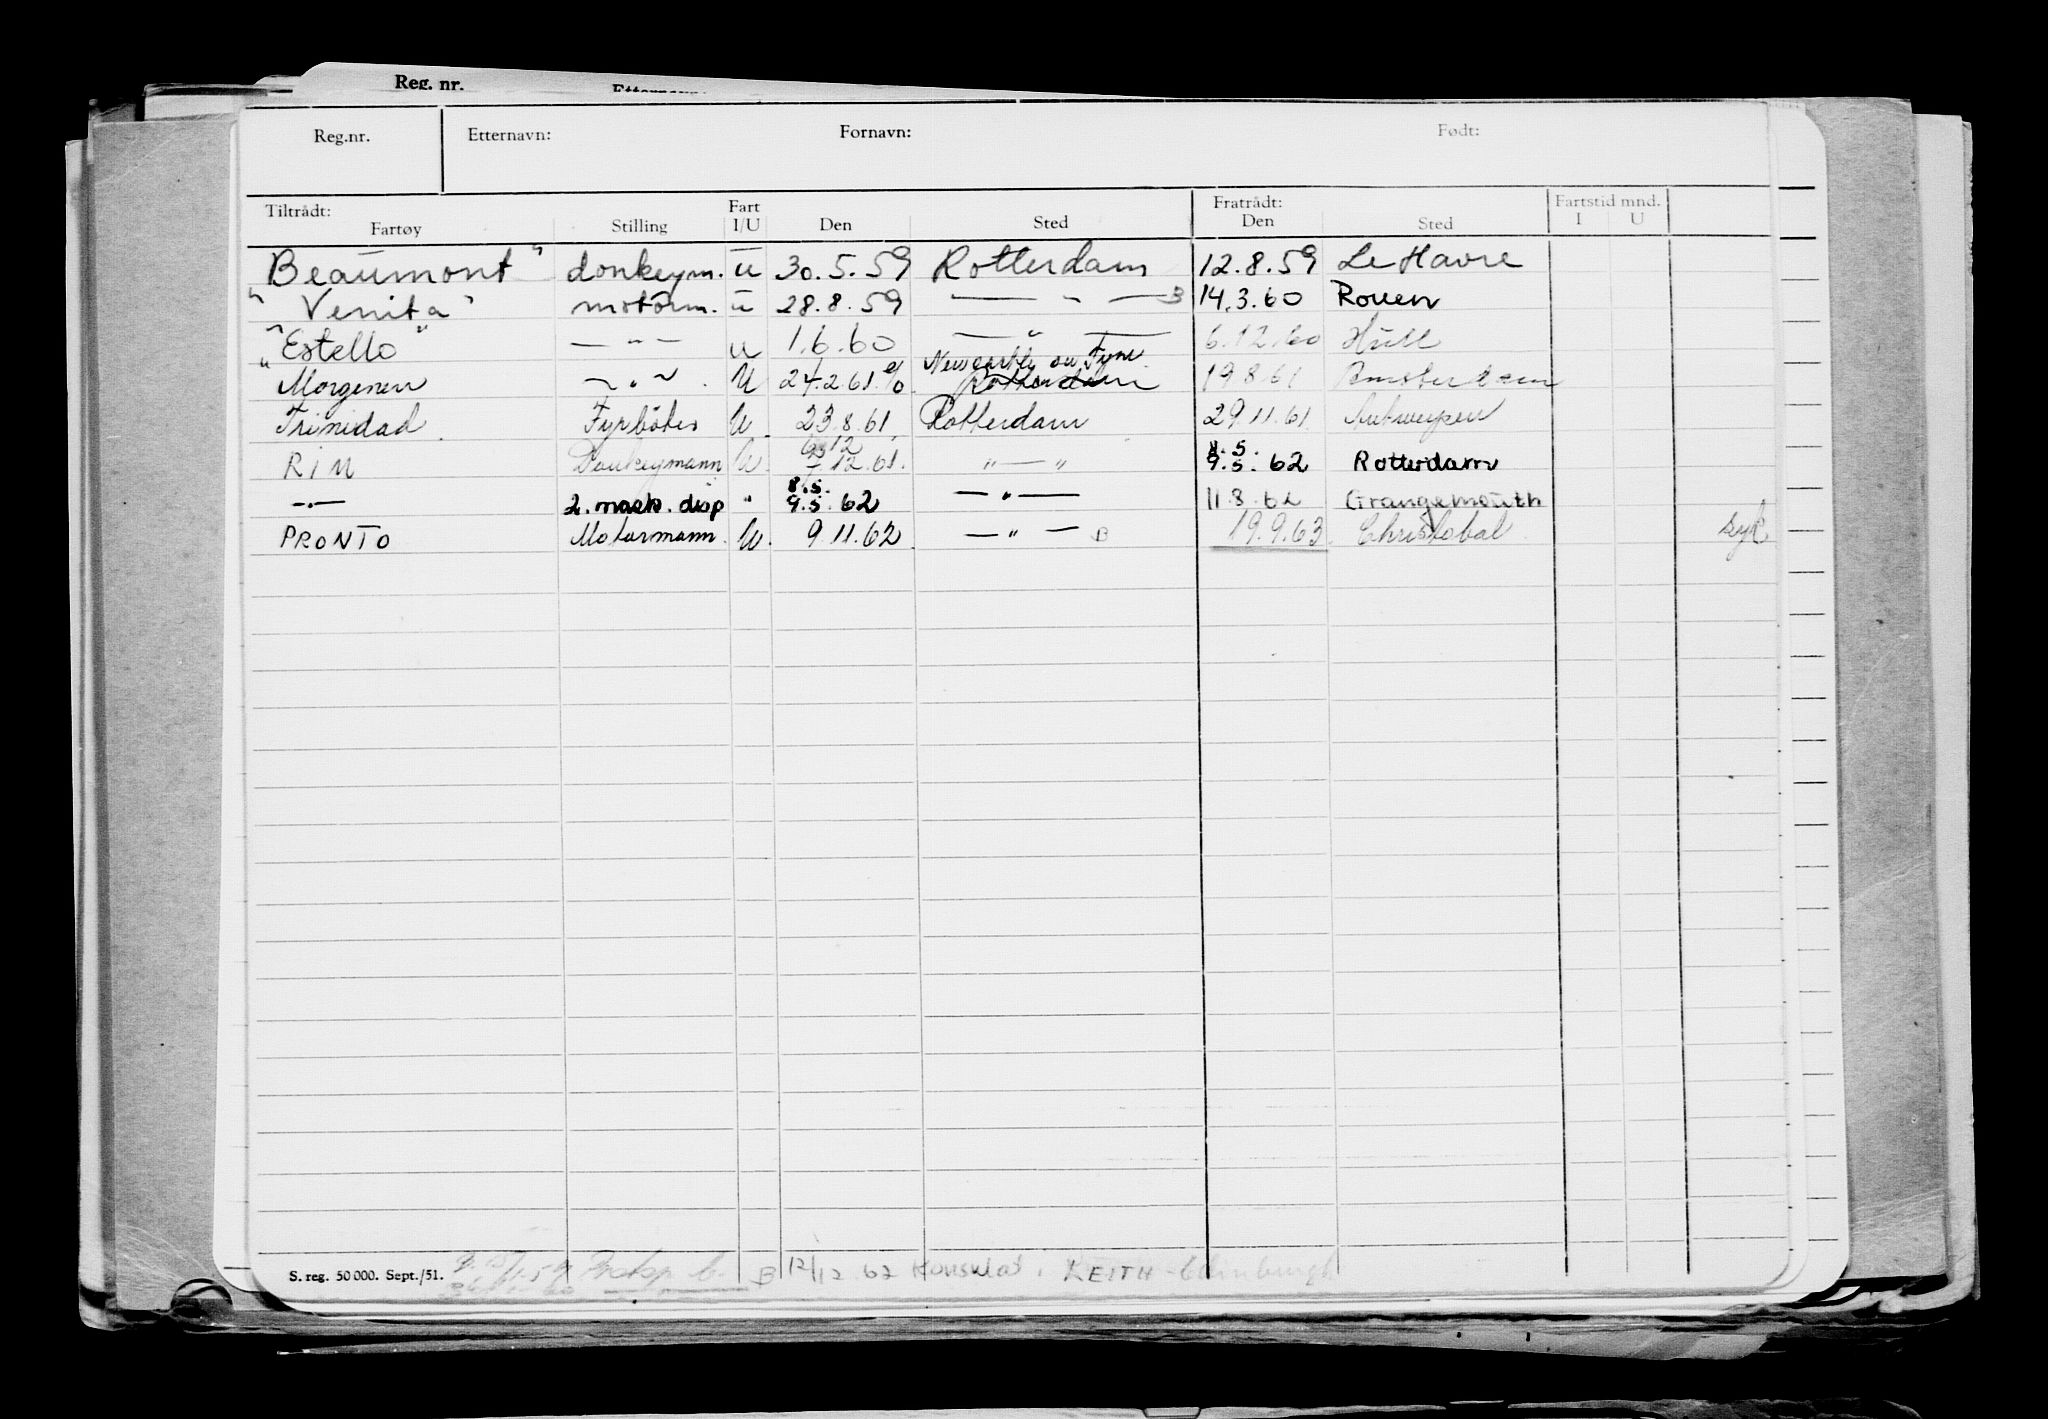 Reg. nr. Etternavn:
Reg.nr. Etternavn: Fornavn: Født:
Tiltrådt: Fart Fratrådt: Fartstid mnd.
Fartøy Stilling I/U Den Sted Den Sted I U
Beaumont" donkeym. u 30.5.59 Rotterdam 12.8.59 Le Havre
"Venita" motorm. u 28.8.59 — " — B 14.3.60 Rouen
"Estello" — " — u 1.6.60 — " — 6.12.60 Hull
Newcastle on Tyne
"Morgenen — " — U 24.2.61 % Rotterdam 19.8.61 Amsterdam
Trinidad Fyrböter U 23.8.61 Rotterdam 29.11.61 Antwerpen
RIM Donkeymann U. 12.61. " — " 9.5.62 Rotterdam
8.5.
— " — 2. mask. disp " 9.5.62 — " — 11.8.62 Grangemouth
PRONTO Motormann U. 9.11.62 — " — B 19.9.63 Christobal syk
S. reg. 50 000. Sept./51. B 12/12 62 Konsulat i LEITH - Edinburgh